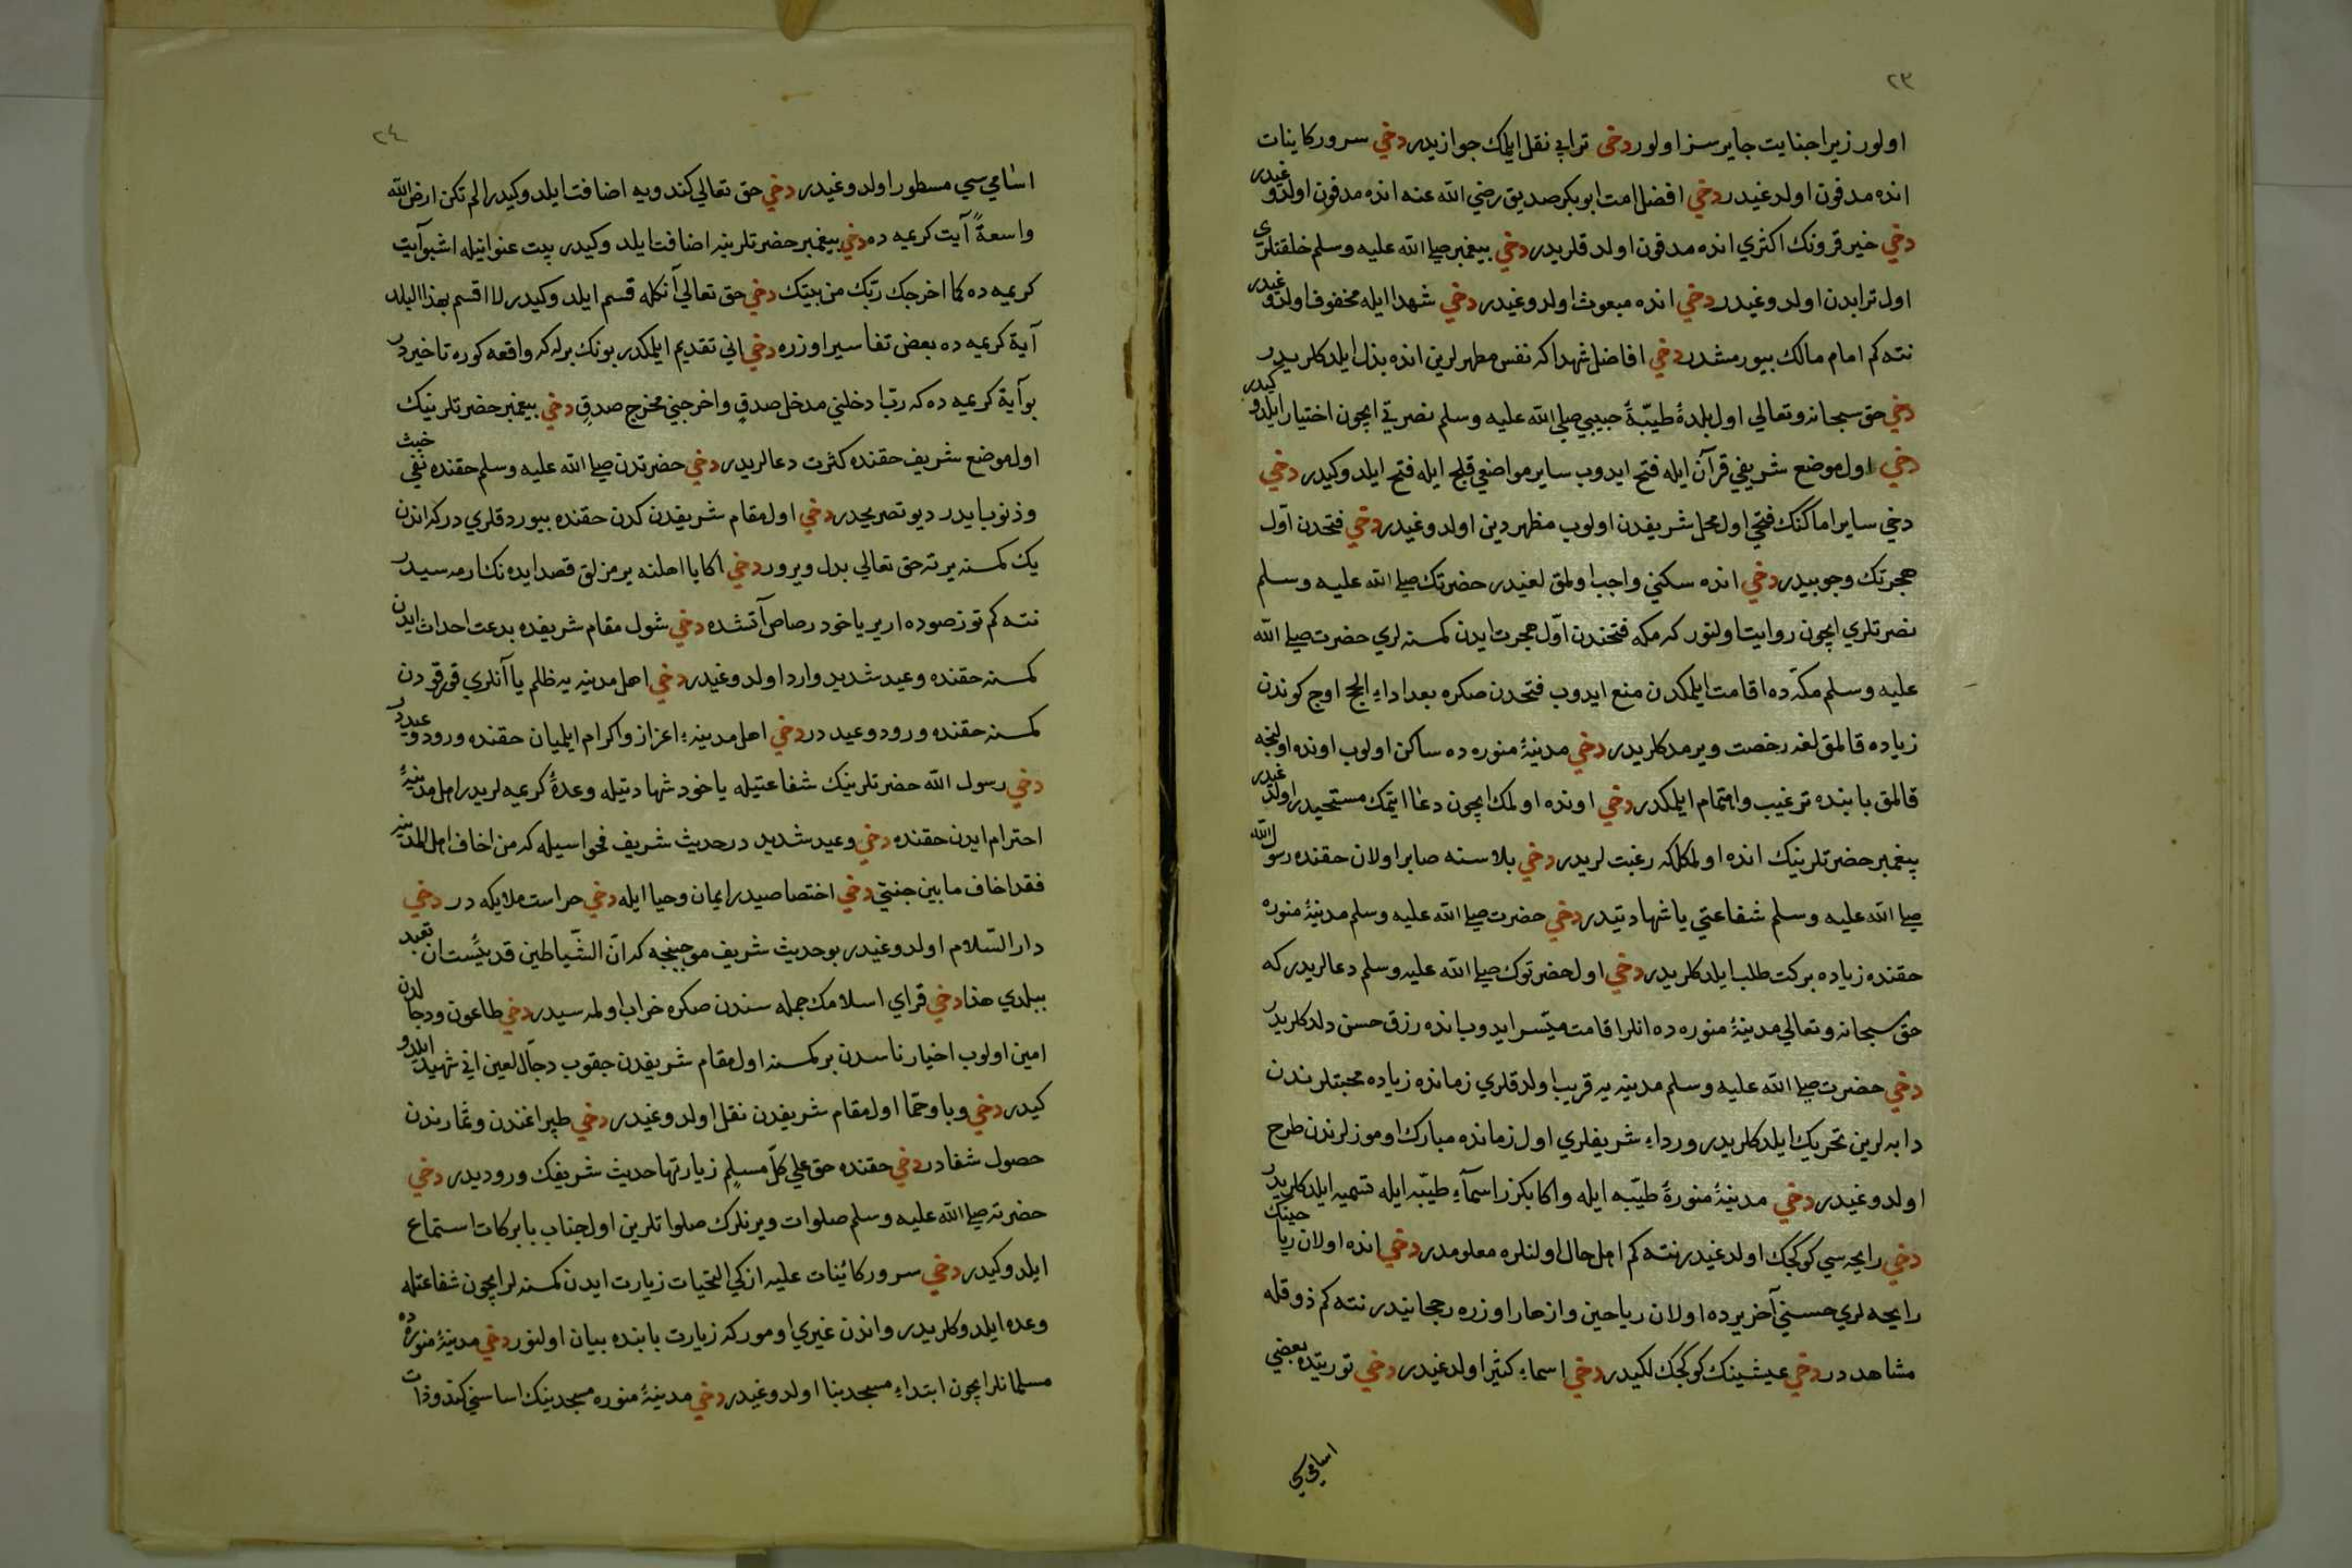 ٢٣
اولور زيرا جنايت جايرسز اولور دخى ترابى نقل ايلمك جوازيدر دخي سرور كاينات
انده مدفون اولدغيدر دخي افضل امت ابوبكر صديق رضي الله عنه انده مدفون اولدوغيدر
دخي خير قرونك اكثري انده مدفون اولدقلريدر دخي پيغمبر صلى الله عليه وسلم خلقتلرى
اول ترابدن اولدوغيدر دخي انده مبعوث اولدوغيدر دخي شهدا ايله محفوف اولدوغيدر
نته كم امام مالك بيورمشدر دخي افاضل شهدا كه نفس مطهرلرين انده بذل ايلدكلريدر
دخي حق سبحانه وتعالي اول بلدهٔ طيّبهٔ حبيبي صلى الله عليه وسلم نصرتي ايچون اختيار ايلدوكيدر
دخي اول موضع شريفي قرآن ايله فتح ايدوب ساير مواضعي قلج ايله فتح ايلدوكيدر دخي
دخي ساير اماكنك فتحي اول محل شريفدن اولوب مظهر دين اولدوغيدر دخي فتحدن اوّل
هجرتك وجوبيدر دخي انده سكني واجب اولمق لغيدر حضرتك صلى الله عليه وسلم
نصرتلري ايچون روايت اولنور كه مكه فتحندن اوّل هجرت ايدن كمسنه لري حضرت صلى الله
عليه وسلم مكّه ده اقامت ايلمكدن منع ايدوب فتحدن صكره بعد اداء الحج اوج كوندن
زياده قالمق لغه رخصت ويرمدكلريدر دخي مدينهٔ منوره ده ساكن اولوب اونده اولنجه
قالمق بابنده ترغيب واهتمام ايلمكدر دخي اونده اولمك ايچون دعا ايتمك مستحيدر اولدوغيدر
پيغمبر حضرتلرينك انده اولمكلكه رغبت لريدر دخي بلاسنه صابر اولان حقنده رسول الله
صلى الله عليه وسلم شفاعتي يا شهادتيدر دخي حضرت صلى الله عليه وسلم مدينهٔ منوره
حقنده زياده بركت طلب ايلدكلريدر دخي اول حضرتوك صلى الله عليه وسلم دعالريدر كه
حق سبحانه وتعالي مدينهٔ منوره ده انلرا اقامت ميّسر ايدوب انده رزق حسن دلدكلريدر
دخي حضرت صلى الله عليه وسلم مدينه يه قريب اولدقلري زمانده زياده محبتلرندن
دابه لرين تحريك ايلدكلريدر ورداء شريفلري اول زمانده مبارك اوموزلرندن طرح
اولدوغيدر دخي مدينهٔ منورهٔ طيّبه ايله واكا بكزر اسماء طيّبه ايله تسميه ايلدكلريدر
دخي رايحه سي كوكچك اولدغيدر نته كم اهل حال اولنلره معلومدر دخي انده اولان رياحينك
رايحه لري حسني آخر يرده اولان رياحين وازهار اوزره رجحانيدر نته كم ذوقله
مشاهددر دخي عيشينك كوكچك لكيدر دخي اسماء كثير اولدغيدر دخي توريتده بعضي
اسامي سي
٢٤
اسامي سي مسطور اولدوغيدر دخي حق تعالي كندويه اضافت ايلدوكيدر الم تكن ارض الله
واسعةً آيت كريمه ده دخي پيغمبر حضرتلرينه اضافت ايلدوكيدر بيت عنوانيله اشبو آيت
كريمه ده كما اخرجك ربّك من بيتك دخي حق تعالي آنكله قسم ايلدوكيدر لا اقسم بهذا البلد
آية كريمه ده بعض تفاسير اوزره دخي اني تقديم ايلمكدر بونك برله كه واقعه كوره تاخيردر
بو آية كريمه ده كه رب ادخلني مدخل صدقٍ واخرجني مخرج صدقٍ دخي پيغمبر حضرتلرينيك
اول موضع شريف حقنده كثرت دعالريدر دخي حضرتدن صلى الله عليه وسلم حقنده نفي خبث
وذنوبايدر ديو تصريحدر دخي اول مقام شريفدن كدن حقنده بيوردقلري دركه اندن
يك كمسنه يرته حق تعالي بدل ويرور دخي اكا يا اهلنه يرمزلق قصد ايده نك ارمه سيدر
نته كم توز صوده ارير ياخود رصاص آتشده دخي شول مقام شريفده بدعت احداث ايدن
كمسنه حقنده وعيد شديد وارد اولدوغيدر دخي اهل مدينه يه ظلم يا آنلري قورقودن
كمسنه حقنده ورود وعيد در دخي اهل مدينه‌ء اعزاز واكرام ايلميان حقنده ورود وعيددر
دخي رسول الله حضرتلرينك شفاعتيله ياخود شهادتيله وعدهٔ كريمه لريدر اهل مدينهٔ
احترام ايدن حقنده دخي وعيد شديد در حديث شريف فحواسيله كه من اخاف اهل المدينه
فقد اخاف مابين جنبتي دخي اختصاصيدر ايمان وحيا ايله دخي حراست ملايكه در دخي
دار السّلام اولدوغيدر بو حديث شريف موجبنجه كه انّ الشّياطين قد يئست ان تعبد
ببلدي هذا دخي قراي اسلامك جمله سندن صكره خراب اولمه سيدر دخي طاعون ودجالدن
امين اولوب اخيار ناسدن بر كمسنه اول مقام شريفدن چقوب دجّال لعين اني شهيد ايلدو
كيدر دخي وبا وحمّا اول مقام شريفدن نقل اولدوغيدر دخي طپراغندن وثمارندن
حصول شفادر دخي حقنده حق علي كلّ مسلمٍ زيارتها حديث شريفك وروديدر دخي
حضرته صلى الله عليه وسلم صلوات ويرنلرك صلواتلرين اول جناب بابركات استماع
ايلدوكيدر دخي سرور كائنات عليه ازكي التحيات زيارت ايدن كمسنه لر ايچون شفاعتله
وعده ايلدوكلريدر واندن غيري اوموركه زيارت بابنده بيان اولنور دخي مدينهٔ منوره ده
مسلمانلر ايچون ابتداء مسجد بنا اولدوغيدر دخي مدينهٔ منوره مسجدينك اساسني كندو ذات